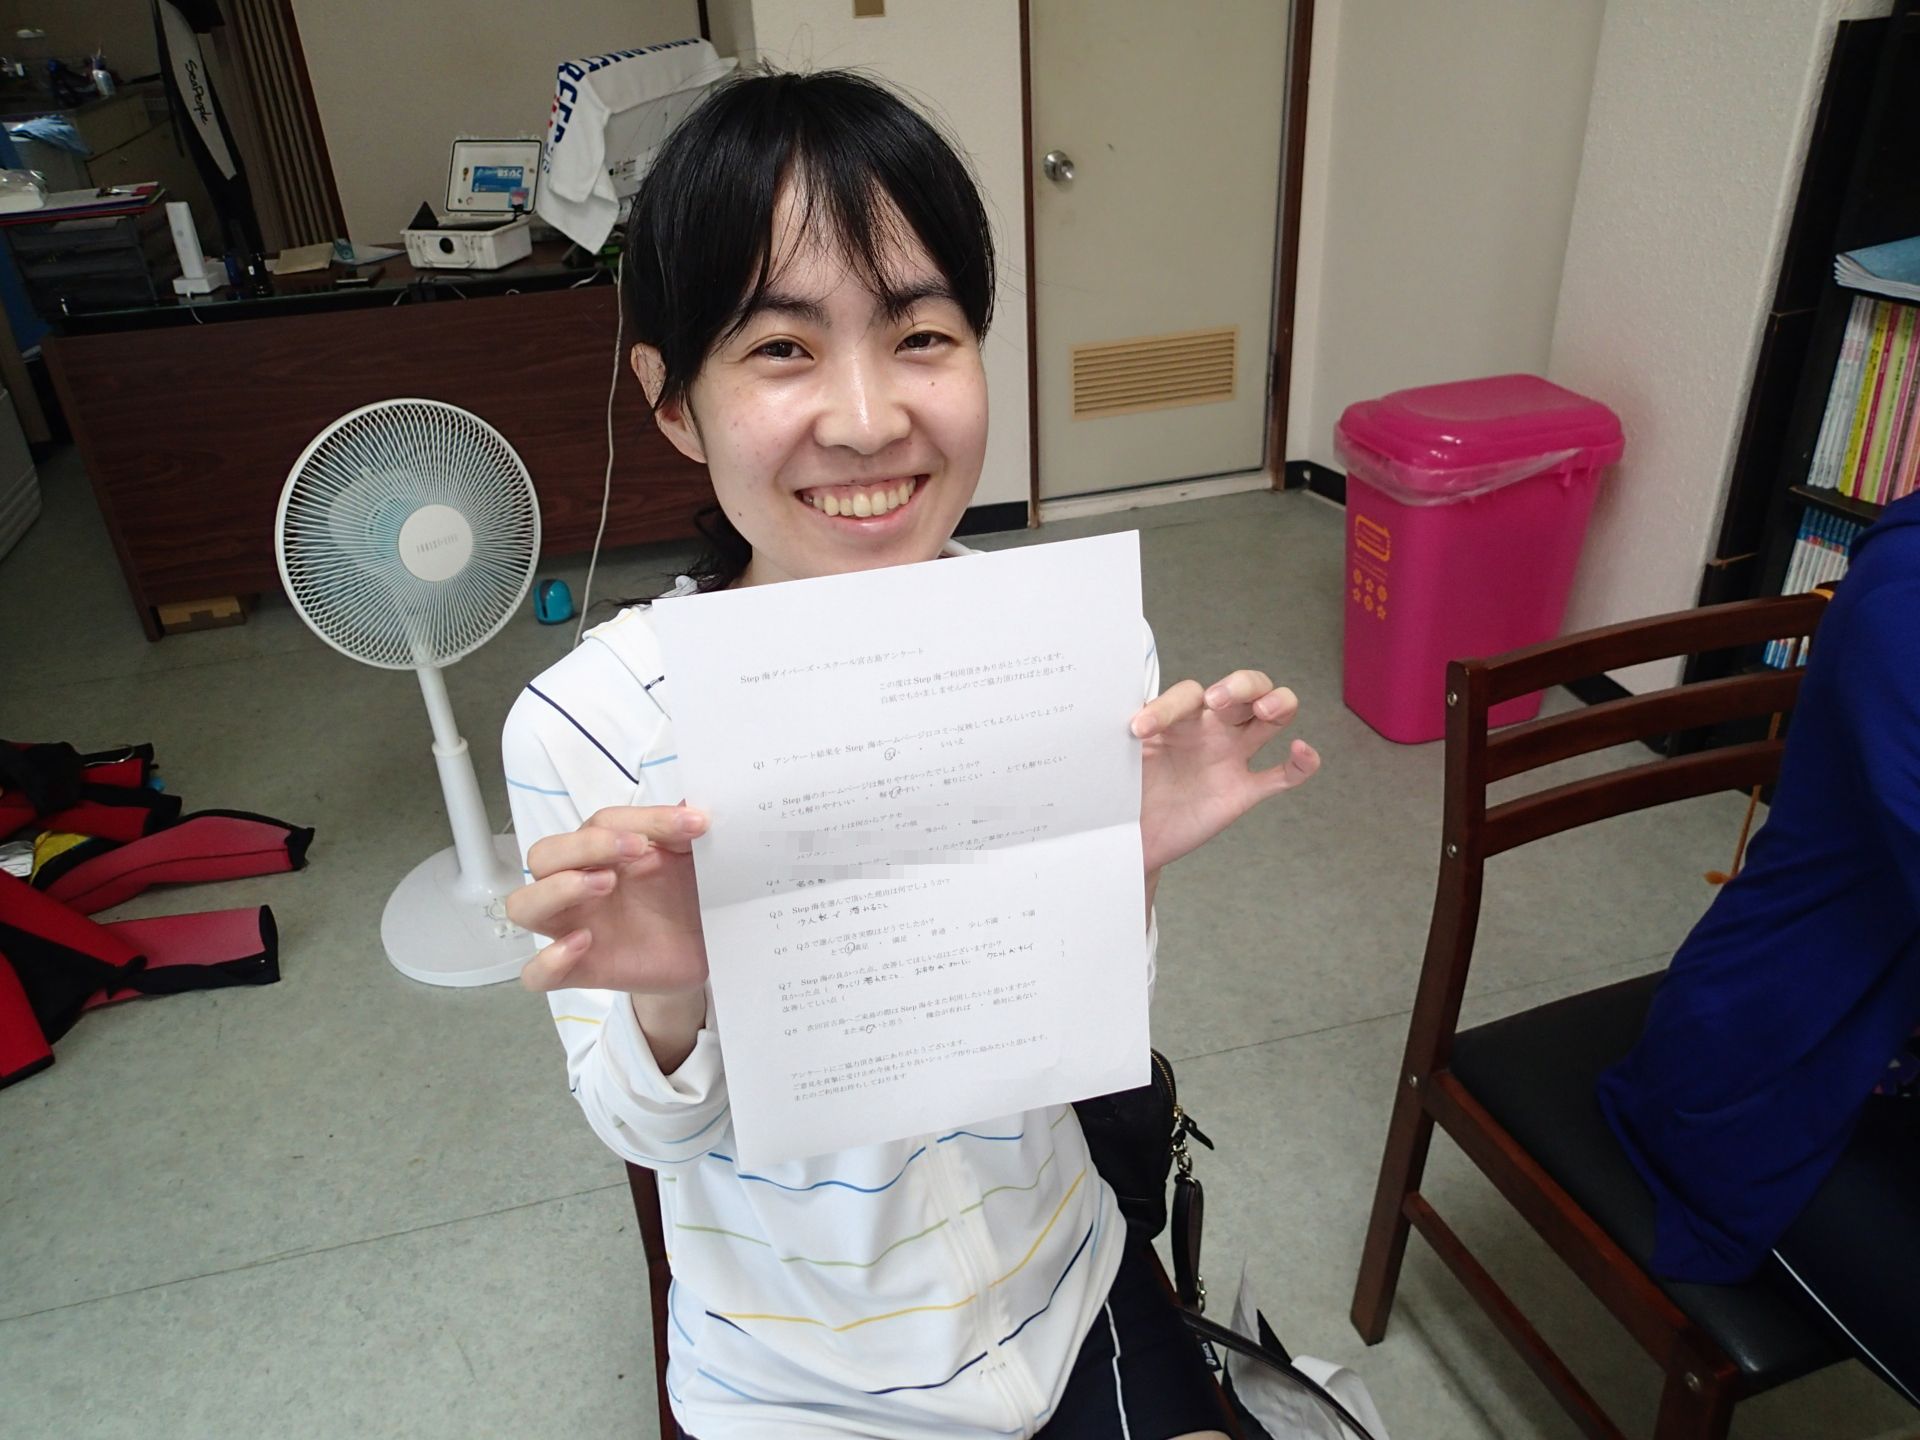 SeaPeople
Step 海ダイバーズ・スクール宮古島アンケート
この度は Step 海ご利用頂きありがとうございます。
白紙でもかましませんのでご協力頂ければと思います。
Q1 アンケート結果を Step 海ホームページ口コミへ反映してもよろしいでしょうか？
はい ・ いいえ
Q2 Step 海のホームページは解りやすかったでしょうか？
とても解りやすいい ・ 解りやすい ・ 解りにくい ・ とても解りにくい
サイトは何からアクセ
その他
パソコン
したか？またご参加メニューは？
Q4
Q5 Step 海を選んで頂いた理由は何でしょうか？
( 少人数で 潜れること )
Q6 Q5 で選んで頂き実際はどうでしたか？
とても満足 ・ 満足 ・ 普通 ・ 少し不満 ・ 不満
Q7 Step 海の良かった点、改善してほしい点はございますか？
良かった点 ( ゆっくり潜れたこと、お弁当がおいしい ウエットがキレイ )
改善してしい点 ( )
Q8 次回宮古島へご来島の際は Step 海をまた利用したいと思いますか？
また来たいと思う ・ 機会が有れば ・ 絶対に来ない
アンケートにご協力頂き誠にありがとうございます。
ご意見を真摯に受け止め今後もより良いショップ作りに励みたいと思います。
またのご利用お待ちしております